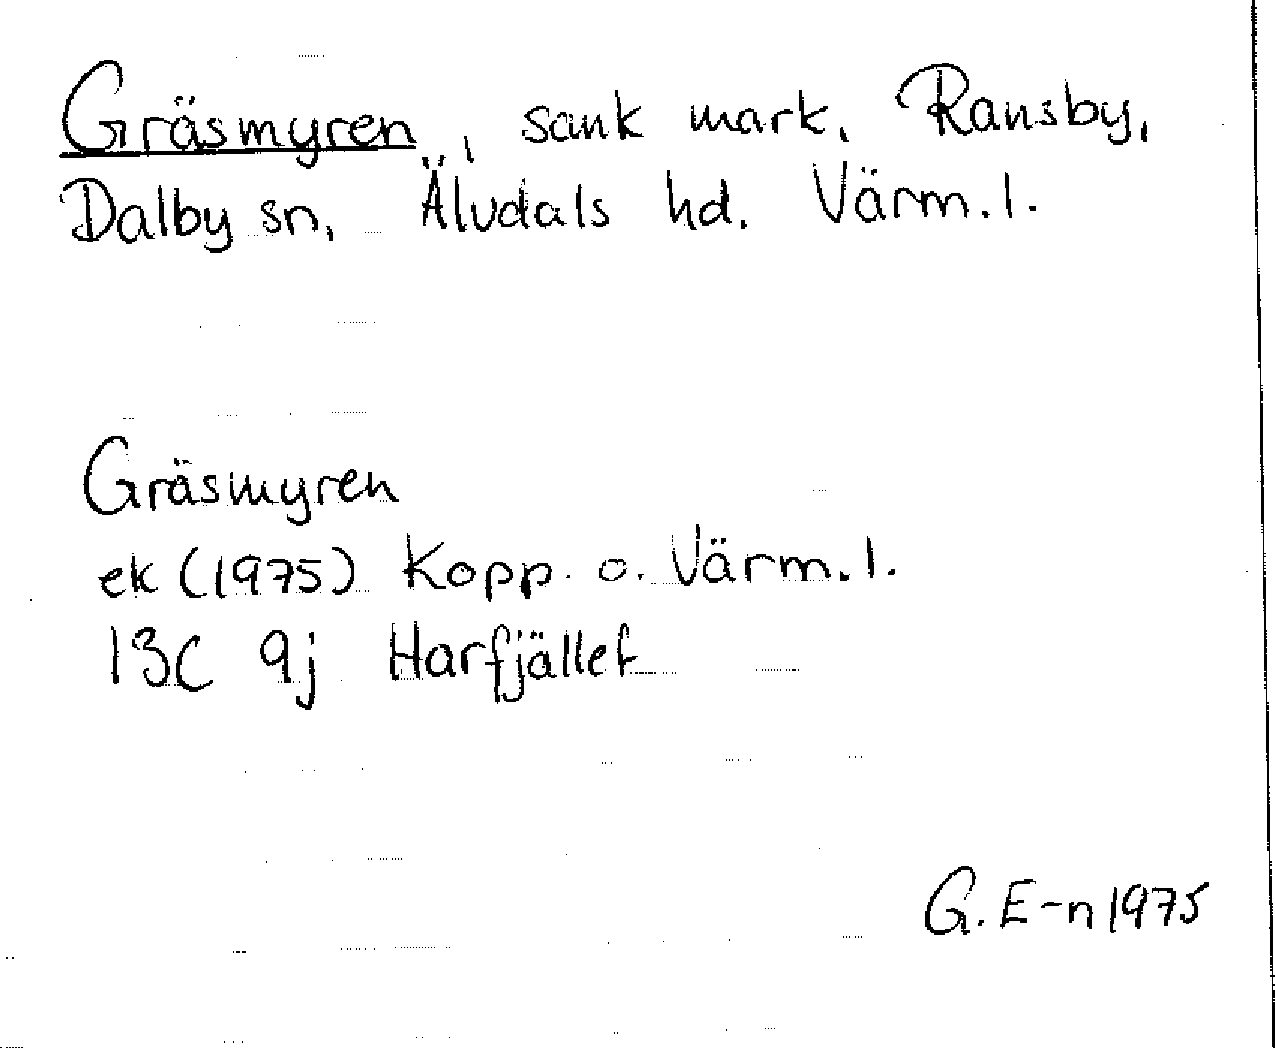 Gräsmyren, sank mark, Ransby,
Dalby sn, Älvdals hd. Värm. l.
Gräsmyren
ek (1975) Kopp. o. Värm. l.
13C 9j Harfjället
G. E-n 1975